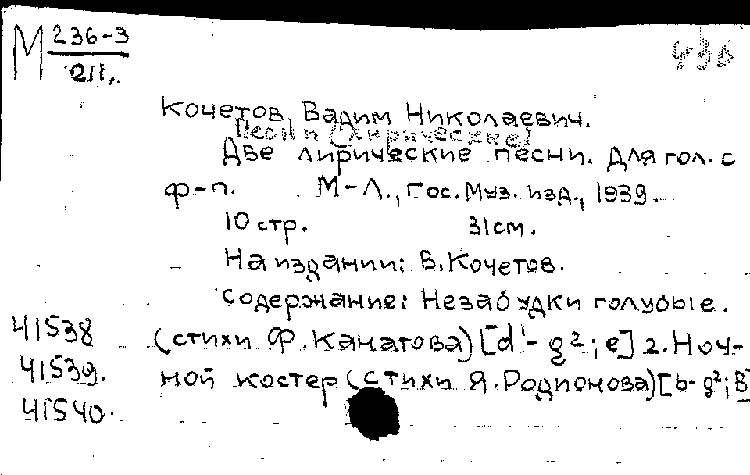 М 236-3
211.
Кочетов, Вадим Николаевич.
Песни (лирические)
Две лирические песни. Для гол. с
ф-п. М-Л., Гос. Муз. изд., 1939.
10 стр. 31 см.
На издании: В. Кочетов.
Содержание: Незабудки голубые.
41538 (стихи Ф. Канатова) [d¹- g²; e] 2. Ноч-
41539. ной костер (стихи Я. Родионова) [b- g²; B
41540.